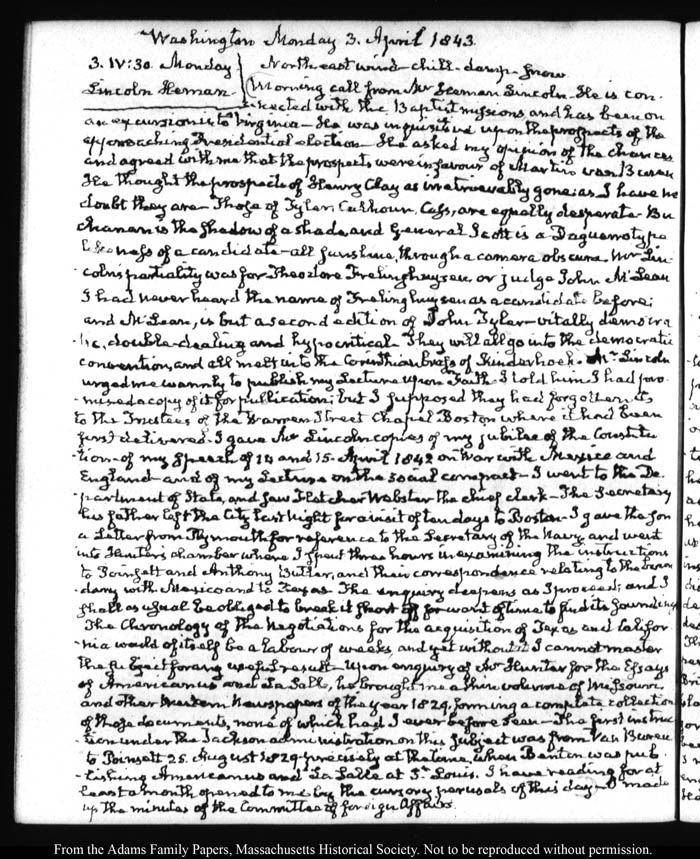 Washington Monday 3. April 1843.
3. IV:30. Monday North east wind - chill - damp - snow
Lincoln Heman. Morning call from Mr Heman Lincoln - He is con-
-nected with the Baptist missions, and has been on
an excursion to Virginia - He was inquisitive upon the prospects of the
approaching Presidential election - He asked my opinion of the chances
and agreed with me that the prospects were in favour of Martin Van Buren
He thought the prospects of Henry Clay as irretrievably gone: as I have no
doubt they are - Those of Tyler, Calhoun, Cass, are equally desperate. Bu
chanan is the shadow of a shade, and General Scott is a Daguerrotype
likeness of a candidate - all sunshine, through a camera obscura. Mr Lin-
-coln's partiality was for Theodore Frelinghuysen, or judge John McLean
I had never heard the name of Frelinghuysen as a candidate before;
and McLean, is but a second edition of John Tyler - vitally democra
-tic, double-dealing and hypocritical. They will all go into the democratic
convention, and all melt into the Corinthian brass of Kinderhook. Mr Lincoln
urged me warmly to publish my Lecture upon Faith. I told him I had pro-
-mised a copy of it for publication; but I supposed they had forgotten it
to the Trustees of the Warren Street Chapel Boston where it had been
first delivered. I gave Mr Lincoln copies of my jubilee of the Constitu
-tion - of my Speech of 14 and 15. April 1842 on War with Mexico and
England - and of my Lecture on the social compact - I went to the De-
-partment of State, and saw Fletcher Webster the chief clerk - The Secretary
his father left the City last Night for a visit of ten days to Boston - I gave the son
a Letter from Plymouth for reference to the Secretary of the Navy and went
into Hunter's chamber where I spent three hours in examining the instructions
to Poinsett and Anthony Butler, and their correspondence relating to the boun
-dary with Mexico and to Texas. The enquiry deepens as I proceed; and I
shall as usual be obliged to break it short off for want of time to find its soundings
The Chronology of the Negotiations for the acquisition of Texas and Califor
-nia would of itself be a labour of weeks, and yet without it I cannot master
the subject for any useful result - Upon enquiry of Mr Hunter for the Essays
of Americanus and La Salle, he brought me a thin volume of Missouri
and other Western Newspapers of the year 1829, forming a complete collection
of those documents, none of which had I ever before seen - The first instruc
-tion under the Jackson administration on this subject was from Van Buren
to Poinsett 25. August 1829. precisely at the time, when Benton was pub
-lishing Americanus and La Salle at St. Louis. I have reading for at
least a month opened to me by the cursory perusals of this day - I made
up the minutes of the Committee of foreign Affairs.
From the Adams Family Papers, Massachusetts Historical Society. Not to be reproduced without permission.